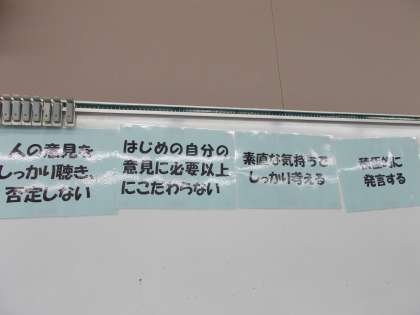 人の意見を
しっかり聴き、
否定しない
はじめの自分の
意見に必要以上
にこだわらない
素直な気持ちで
しっかり考える
積極的に
発言する